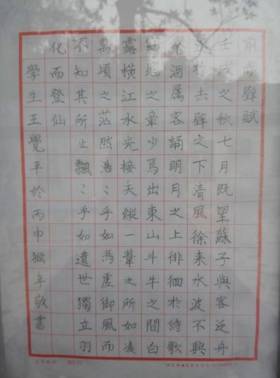 前赤壁賦
壬戌之秋七月既望蘇子與客泛舟
遊於赤壁之下清風徐來水波不興
舉酒屬客誦明月之上徘徊於詩歌
窈窕之章少焉出東山斗牛之間白
露橫江水光接天縱一葦之所如凌
萬頃之茫然浩々乎如馮虛御風而
不知其所止飄々乎如遺世獨立羽
化而登仙
學生王覺平於丙申猴年敬書